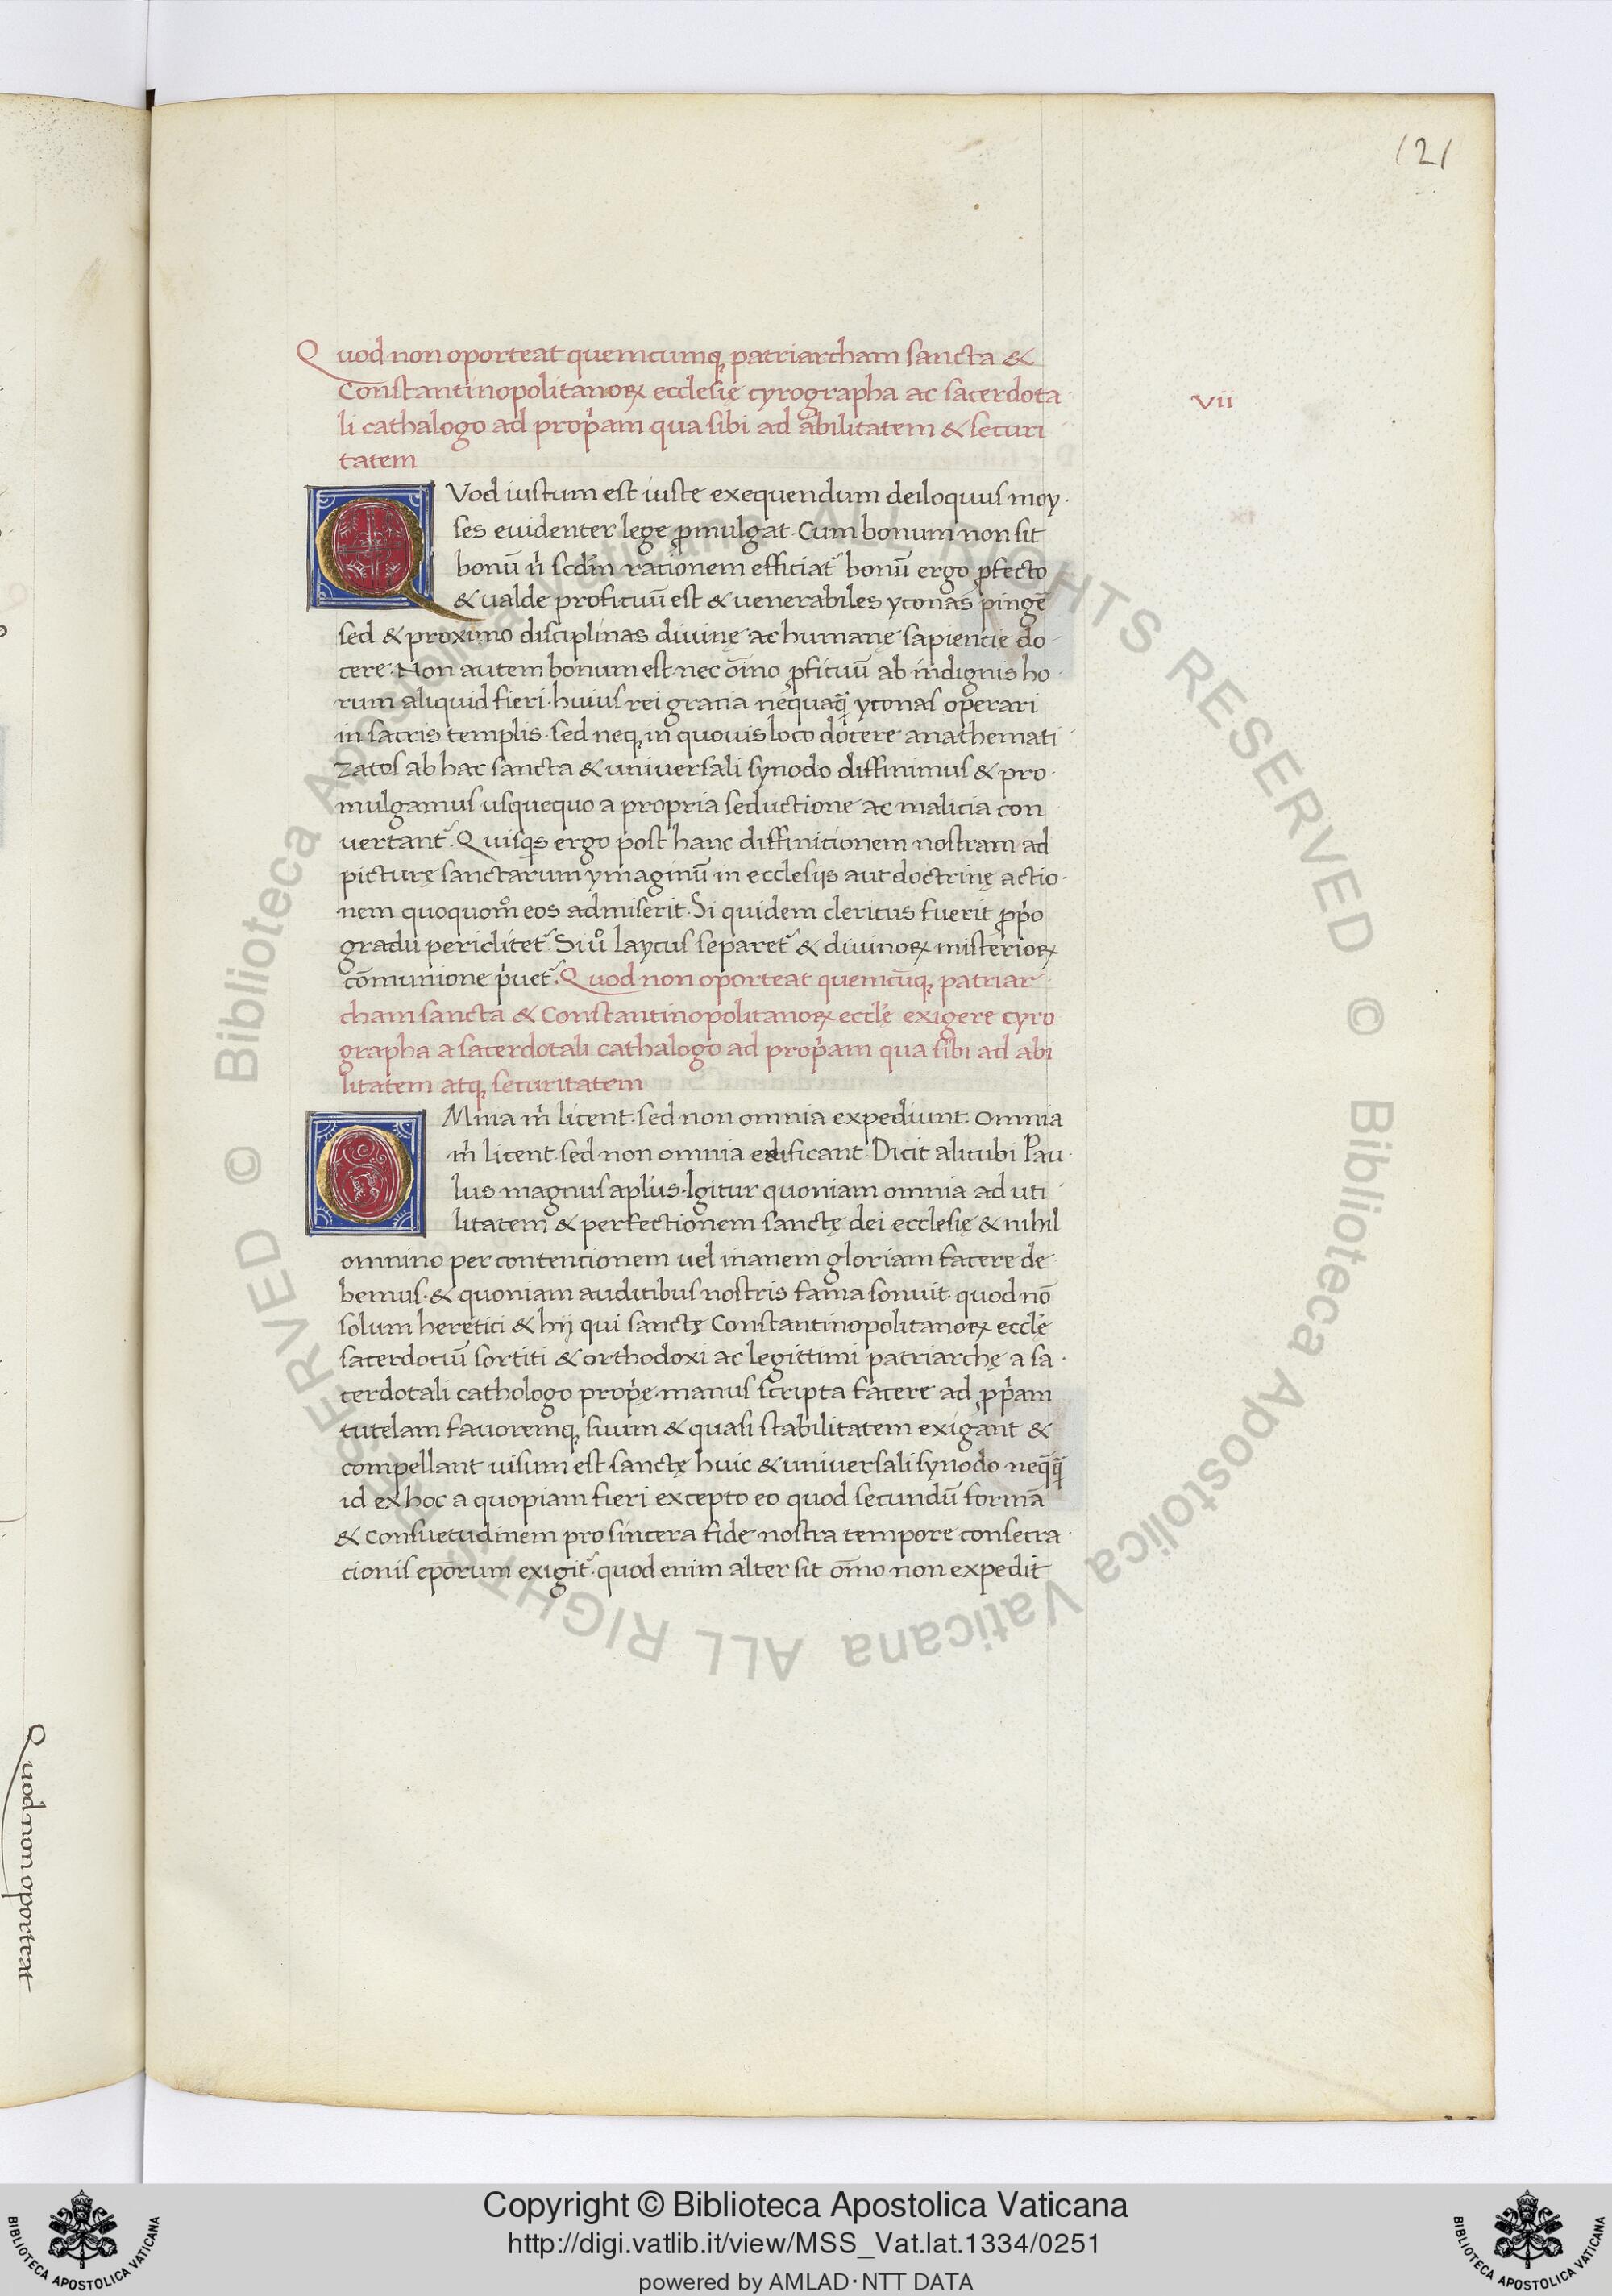 121
Quod non oporteat quemcumq; patriarcham sancta &
Constantinopolitanoꝝ ecclesię cyrographa ac sacerdota
li cathalogo ad prop̓am qua sibi ad abilitatem & securi
tatem
vii
QVod iustum est iuste exequendum deiloquus moy-
ses euidenter lege ꝓmulgat. Cum bonum non sit
bonū n̓ scd̓m rationem efficiat᷑ bonū ergo ꝓfecto
& ualde proficuū est & uenerabiles yconas pingē
sed & proximo disciplinas diuinę ac humanę sapientie do-
cere. Non autem bonum est nec oīno ꝓficuū ab indignis ho-
rum aliquid fieri. huius rei gratia nequaꝗ̄ yconas operari
in sacris templis. sed neq; in quouis loco docere anathemati-
zatos ab hac sancta & uniuersali synodo diffinimus & pro-
mulgamus usquequo a propria seductione ac malicia con
uertant᷑. Quisq̓s ergo post hanc diffinitionem nostram ad
picturę sanctarum ymaginū in ecclesiis aut doctrinę actio-
nem quoquom̊ eos admiserit. Si quidem clericus fuerit ꝓp̓o
gradu periclitet᷑. Si ů laycus separet᷑ & diuinoꝝ misterioꝝ
cōmunione p̓uet᷑. Quod non oporteat quemcūq; patriar-
cham sancta & Constantinopolitanoꝝ eccl̓e exigere cyro
grapha a sacerdotali cathalogo ad prop̓am qua sibi ad abi
litatem atq; securitatem
OMnia m̓ licent. sed non omnia expediunt. Omnia
m̓ licent sed non omnia edificant. Dicit alicubi Pau-
lus magnus apl̓us. Igitur quoniam omnia ad uti-
litatem & perfectionem sanctę dei ecclesię & nihil
omnino per contencionem uel inanem gloriam facere de-
bemus. & quoniam auditibus nostris fama sonuit. quod nō
solum heretici & hij qui sanctę Constantinopolitanoꝝ eccl̓ę
sacerdotiū sortiti & orthodoxi ac legittimi patriarchę a sa-
cerdotali cathologo prop̓ę manus scripta facere ad ꝓp̓am
tutelam fauoremq; suum & quasi stabilitatem exigant &
compellant uisum est sanctę huic & uniuersali synodo neq̄ꝗ̄
id ex hoc a quopiam fieri excepto eo quod secundū formā
& consuetudinem pro sincera fide nostra tempore consecra-
cionis ep̄orum exigit᷑. quod enim alter sit oīno non expedit
Quod non oporteat
Copyright © Biblioteca Apostolica Vaticana
http://digi.vatlib.it/view/MSS_Vat.lat.1334/0251
powered by AMLAD·NTT DATA
BIBLIOTECA APOSTOLICA VATICANA
BIBLIOTECA APOSTOLICA VATICANA
© Biblioteca Apostolica Vaticana ALL RIGHTS RESERVED
© Biblioteca Apostolica Vaticana ALL RIGHTS RESERVED